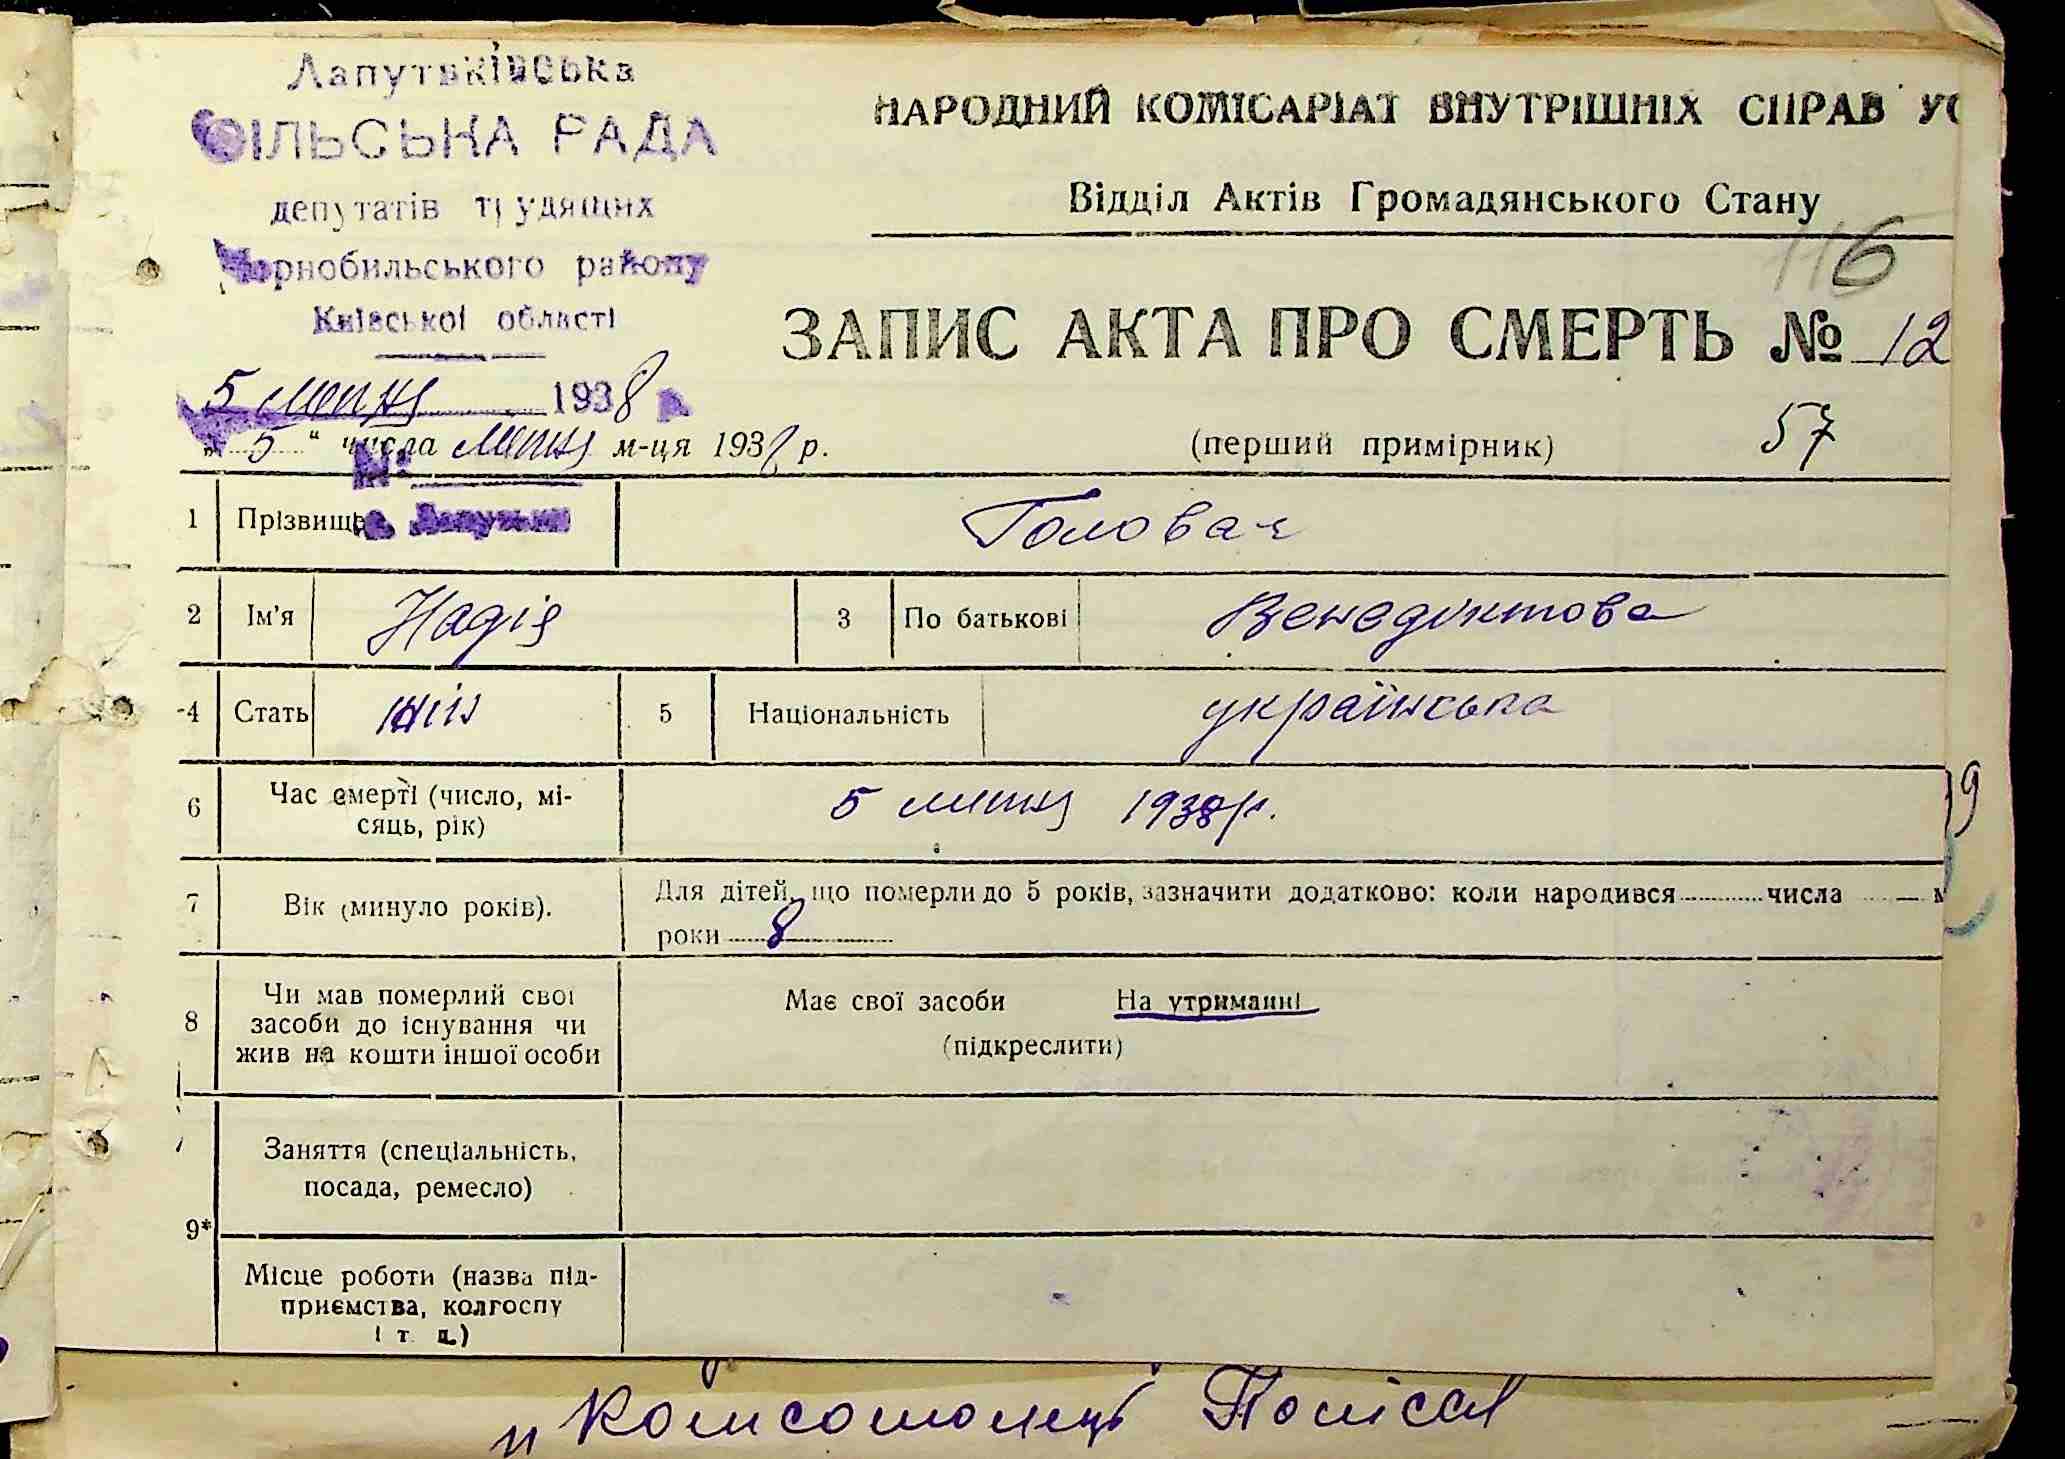 Лапутьківська
СІЛЬСЬКА РАДА
депутатів трудящих
Чорнобильського району
Київської області
5 лютня 1938
№
НАРОДНИЙ КОМІСАРІАТ ВНУТРІШНІХ СПРАВ УС
Відділ Актів Громадянського Стану
116
ЗАПИС АКТА ПРО СМЕРТЬ № 12
„ 5 “ числа лютня м-ця 1938 р.
(перший примірник) 57
1 Прізвище Головач
2 Ім’я Надія 3 По батькові Венедіктова
4 Стать жін 5 Національність українська
6 Час смерті (число, мі-
сяць, рік) 5 лютня 1938 р.
7 Вік (минуло років). Для дітей, що померли до 5 років, зазначити додатково: коли народився числа м
роки 8
8 Чи мав померлий свої
засоби до існування чи
жив на кошти іншої особи
Має свої засоби На утриманні
(підкреслити)
9*
Заняття (спеціальність,
посада, ремесло)
Місце роботи (назва під-
приємства, колгоспу
і т. д.)
9
"Комсомолець Полісся